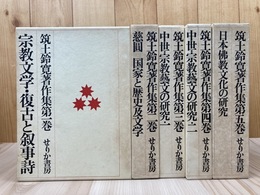 筑土鈴寛著作集第一巻 せりか書房
宗教文学・復古と叙事詩
筑土鈴寛著作集第二巻 せりか書房
慈圓 国家と歴史及文学
筑土鈴寛著作集第三巻 せりか書房
中世・宗教藝文の研究一
筑土鈴寛著作集第四巻 せりか書房
中世・宗教藝文の研究二
筑土鈴寛著作集第五巻 せりか書房
日本佛教文化の研究